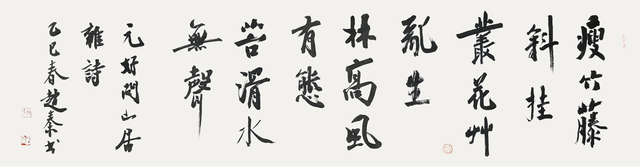 瘦竹藤
斜挂
叢花艸
亂生
林高風
有態
苔滑水
無聲
元好問山居
雜詩
乙巳春趙秦书